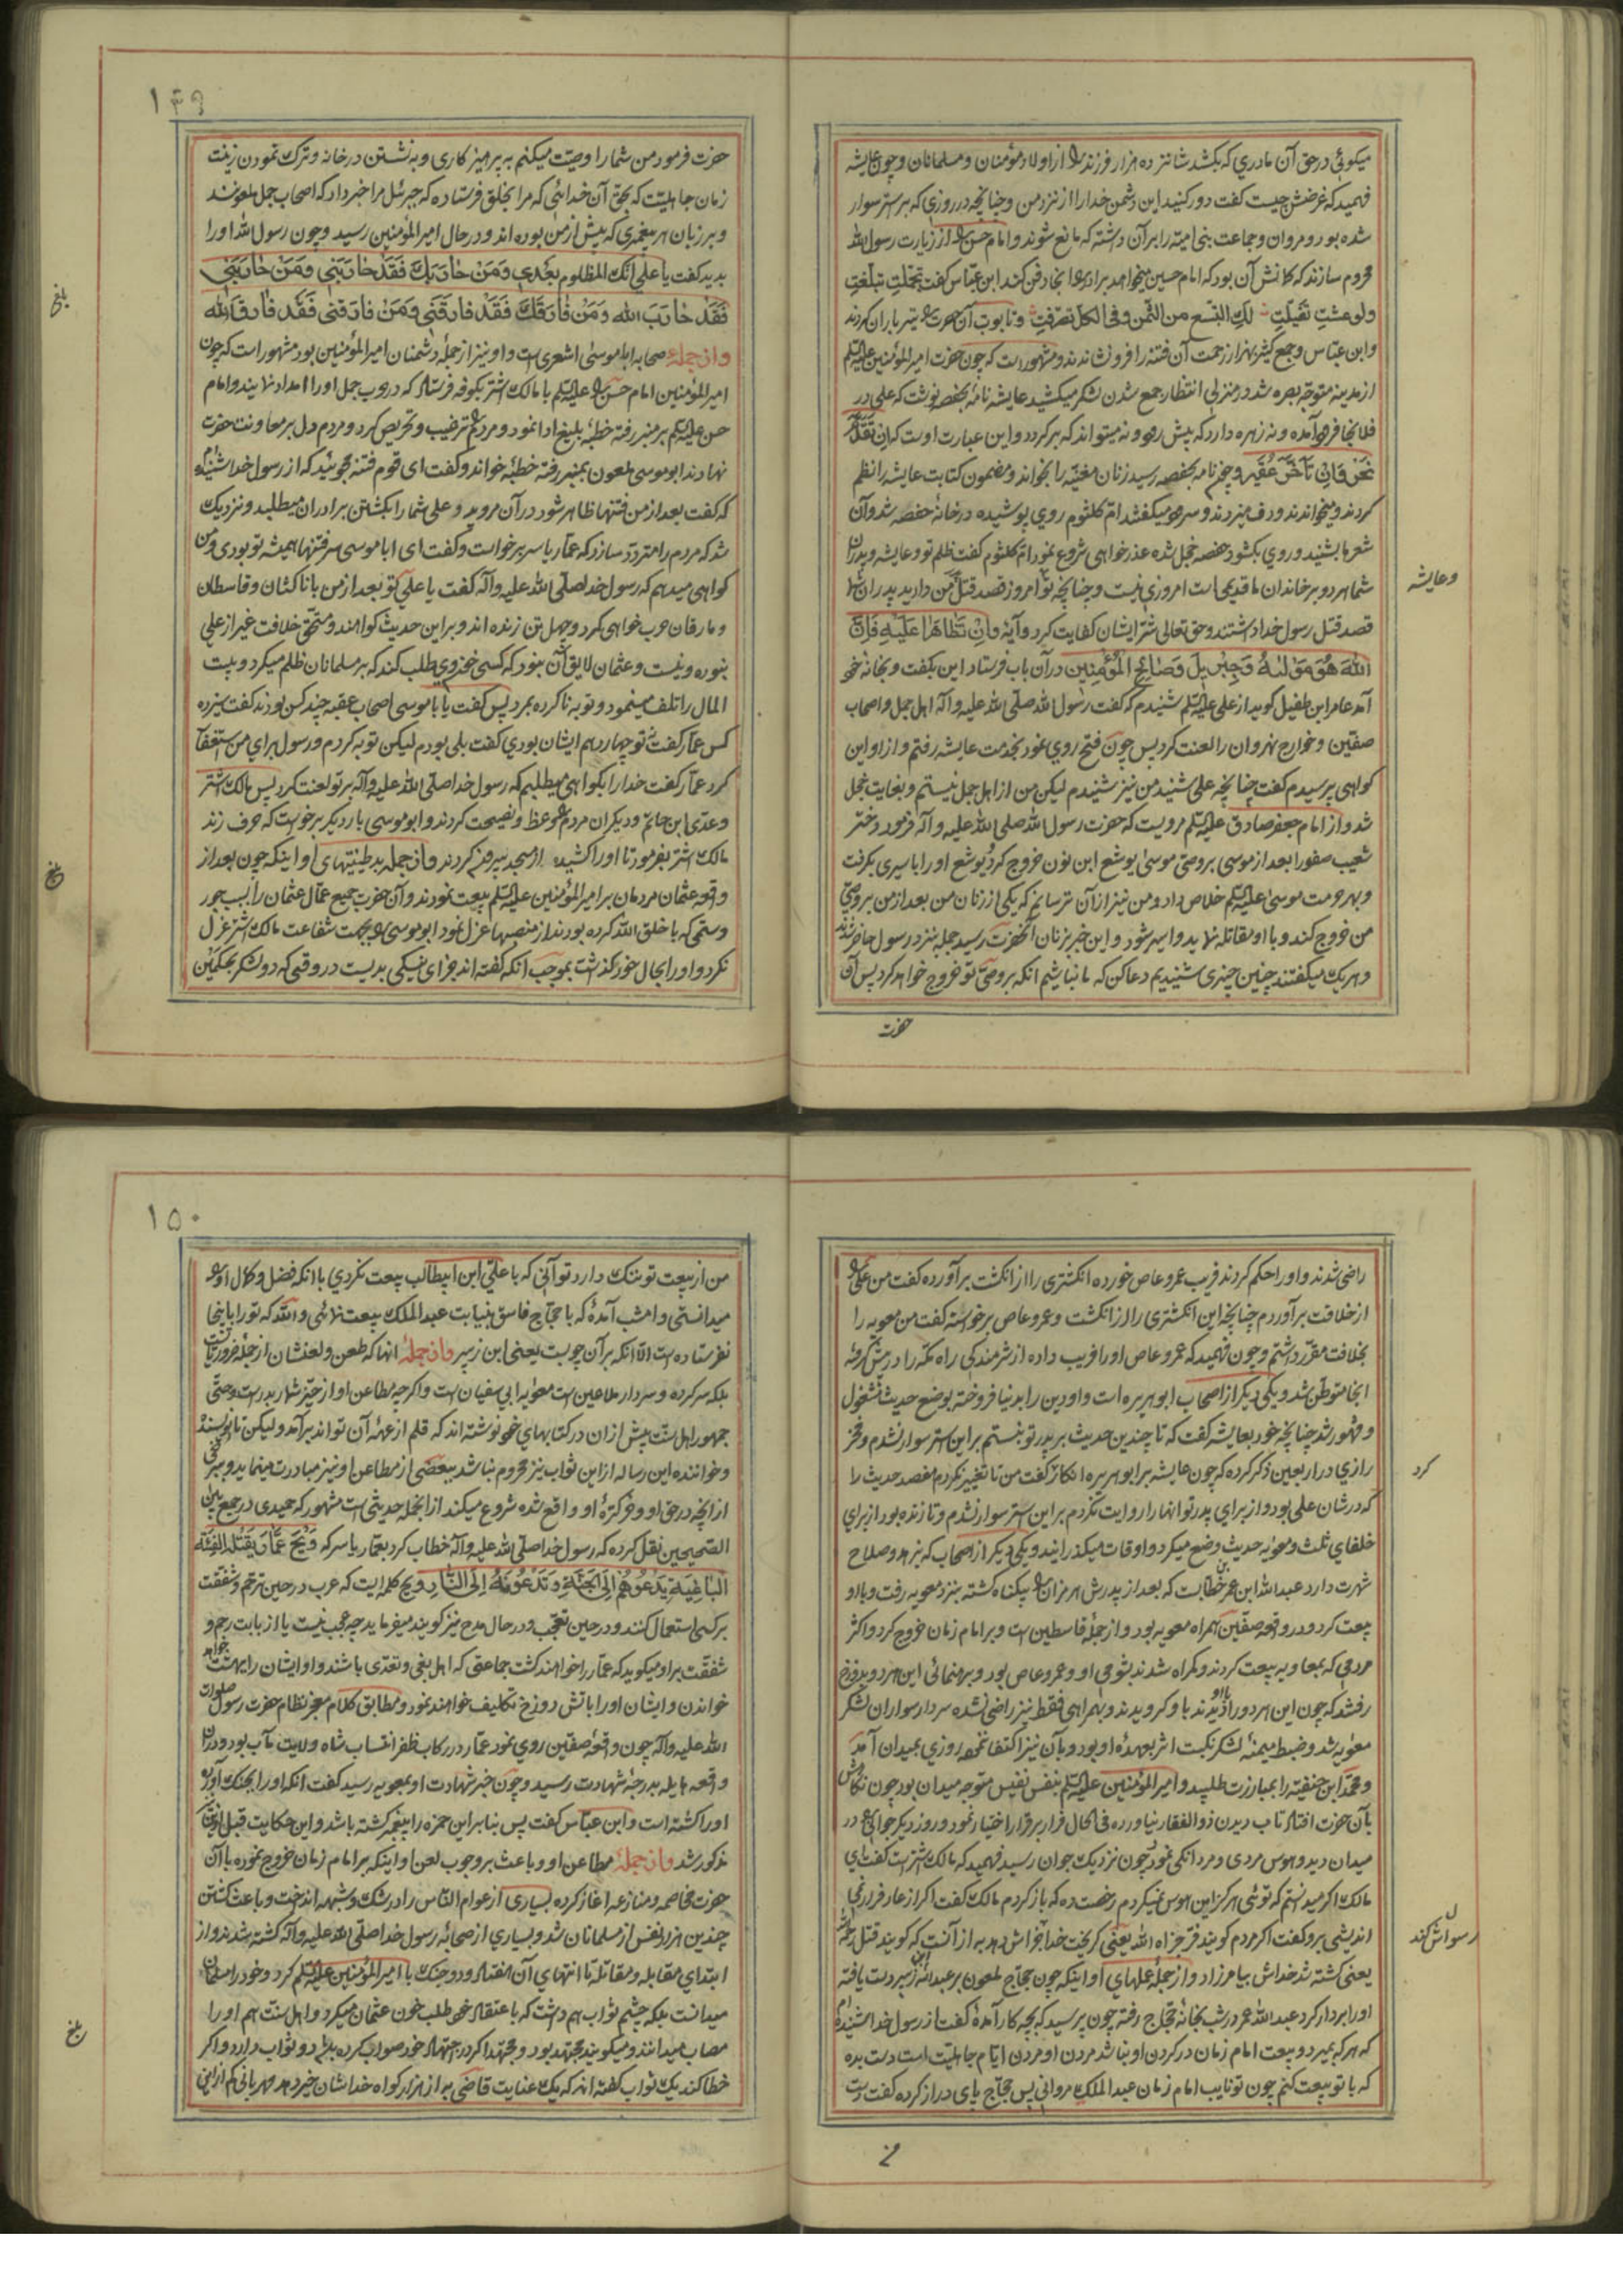 میکوئی در حق آن مادری که بکشد شانزده هزار فرزند را از اولاد مؤمنان و مسلمانان و چون عایشه
فهمید که غرضش چیست کفت دور کنید این دشمن خدا را از نزد من و چنانچه در روزی که بر استر سوار
شده بود و مروان و جماعت بنی امیه را بر آن داشته که مانع شوند و امام حسن را از زیارت رسول الله
محروم سازند که کمانش آن بود که امام حسین میخواهد برادر را انجا دفن کند ابن عباس کفت تجملت تبغلت
ولو عشت تفیلت لك التسع من الثمن و فی الكل تصرفت و تابوت آن حضرت را تیر باران کردند
و ابن عباس و جمع کثیر بهزار زحمت آن فتنه را فرو نشاندند و مشهور است که چون حضرت امیر المؤمنین علیه السلم
از مدینه متوجه بصره شد در منزلی انتظار جمع شدن لشکر میکشید عایشه نامه بحفصه نوشت که علی در
فلانجا فرود آمده و نه زهره دارد که پیش رود و نه میتواند که برکردد و این عبارت اوست که ان تقدم
نحر و ان تأخر عقر و چون نامه بحفصه رسید زنان مغنیه را بخواند و مضمون کتابت عایشه را نظم
کردند و میخواندند و دف میزدند و سرود میکفتند ام کلثوم روی پوشیده در خانه حفصه شد و آن
شعرها بشنید و روی بکشود حفصه خجل شده عذر خواهی شروع نمود ام کلثوم کفت ظلم تو و عایشه و پدران
شما هر دو بر خاندان ما قدیمی است امروزی نیست و چنانچه تو امروز قصد قتل من دارید پدران شما
قصد قتل رسول خدا داشتند و حق تعالی شر ایشان کفایت کرد و آیه وان تظاهرا علیه فان
الله هو مولیه و جبریل و صالح المؤمنین در آن باب فرستاد این بکفت و بخانه خود
آمد عامر ابن طفیل کوید از علی علیه السلم شنیدم که کفت رسول الله صلی الله علیه و آله اهل جمل و اصحاب
صفین و خوارج نهروان را لعنت کرد پس چون فتح روی نمود بخدمت عایشه رفتم و از او این
کواهی پرسیدم کفت چنانچه علی شنید من نیز شنیدم لیکن من از اهل جمل نیستم و بغایت خجل
شد و از امام جعفر صادق علیه السلم مرویست که حضرت رسول الله صلی الله علیه و آله فرمود دختر
شعیب صفورا بعد از موسی بر وصی موسی یوشع ابن نون خروج کرد یوشع او را باسیری بکرفت
و بهر حرمت موسی علیه السلم خلاص داد و من نیز از آن ترسانم که یکی از زنان من بعد از من بر وصی
من خروج کند و با او مقاتله نماید و اسیر شود و این خبر بزنان آنحضرت رسید جمله بنزد رسول حاضر شدند
و هر یک میکفتند چنین چیزی شنیدیم دعا کن که ما نباشیم آنکه بر وصی تو خروج خواهد کرد پس آن
حضرت
و عایشه
١٤٩
حضرت فرمود من شما را وصیت میکنم به پرهیز کاری و به نشستن در خانه و ترک نمودن زینت
زمان جاهلیت که بحق آن خدائی که مرا بخلق فرستاده که جبرئیل مرا خبر داد که اصحاب جمل ملعونند
و بر زبان هر پیغمبری که پیش از من بوده اند و در حال امیر المؤمنین رسید و چون رسول الله او را
بدید کفت یا علی انك المظلوم بعدی و من حاربك فقد حاربنی و من حاربنی
فقد حارب الله و من فارقك فقد فارقنی و من فارقنی فقد فارق الله
و از جمله صحابه ابا موسی اشعری است و او نیز از جمله دشمنان امیر المؤمنین بود مشهور است که چون
امیر المؤمنین امام حسن را علیه السلم با مالک اشتر بکوفه فرستاد که در حرب جمل او را امداد نمایند و امام
حسن علیه السلم بر منبر رفته خطبه بلیغ ادا نمود و مردم را ترغیب و تحریص کرد و مردم دل بر معاونت حضرت
نهادند ابو موسی ملعون بمنبر رفته خطبه خواند و کفت ای قوم فتنه مجوئید که از رسول خدا شنیدم
که کفت بعد از من فتنها ظاهر شود در آن مروید و علی شما را بکشتن برادران میطلبد و نزدیک
شد که مردم را متردد سازد که عمار یاسر برخواست و کفت ای ابا موسی سر فتنها همیشه تو بودی و من
کواهی میدهم که رسول خدا صلی الله علیه و آله کفت یا علی تو بعد از من با ناکثان و قاسطان
و مارقان حرب خواهی کرد و چهل تن زنده اند و بر این حدیث کواهند و مستحق خلافت غیر از علی
نبوده و نیست و عثمان لایق آن نبود که کسی خون وی طلب کند که بر مسلمانان ظلم میکرد و بیت
المال را تلف مینمود و توبه ناکرده بمرد پس کفت یا ابا موسی اصحاب عقبه چند کس بودند کفت سیزده
کس عمار کفت تو چهاردهم ایشان بودی کفت بلی بودم لیکن توبه کردم و رسول برای من استغفار
کرد عمار کفت خدا را بکواهی میطلبم که رسول خدا صلی الله علیه و آله بر تو لعنت کرد پس مالک اشتر
و عدی ابن حاتم و دیکران مردم را موعظ و نصیحت کردند و ابو موسی بار دیکر برخوست که حرف زند
مالک اشتر بفرمود تا او را کشیده از مسجد بیرون کردند و از جمله بدطینتیهای او اینکه چون بعد از
واقعه عثمان مردمان بر امیر المؤمنین علیه السلم بیعت نمودند و آن حضرت جمیع عمال عثمان را بسبب جور
و ستمی که با خلق الله کرده بودند از منصبها عزل نمود ابو موسی را بجهت شفاعت مالک اشتر عزل
نکرد و او را بحال خود کذاشت بموجب آنکه کفته اند جزای نیکی بدیست در وقتی که دو لشکر بحکمین
بلغ
راضی شدند و او را حکم کردند فریب عمرو عاص خورده انکشتری را از انکشت برآورده کفت من علی را
از خلافت برآوردم چنانچه این انکشتری را از انکشت و عمرو عاص برخواسته کفت من معویه را
بخلافت مقرر داشتم و چون فهمید که عمرو عاص او را فریب داده از شرمندکی راه مکه را در پیش کرفته
انجا متوطن شد و یکی دیکر از اصحاب ابو هریره است و او دین را بدنیا فروخته بوضع حدیث مشغول
و مشهور شد چنانچه خود بعایشه کفت که تا چندین حدیث بر پدر تو نبستم بر این استر سوار نشدم و فخر
رازی در اربعین ذکر کرده که چون عایشه بر ابو هریره انکار کفت من تا تغییر نکردم هفصد حدیث را
که در شان علی بود و از برای پدر تو انها را روایت نکردم بر این استر سوار نشدم و تا زنده بود از برای
خلفای ثلث و معویه حدیث وضع میکرد و اوقات میکذرانید و یکی دیکر از اصحاب که بزهد و صلاح
شهرت دارد عبد الله ابن عمر خطابست که بعد از پدرش هرمزان را بیکناه کشته بنزد معویه رفت و با او
بیعت کرد و در واقعه صفین همراه معویه بود و از جمله قاسطین است و بر امام زمان خروج کرد و اکثر
مردمی که بمعاویه بیعت کردند و کمراه شدند بشومی او و عمرو عاص بود و برهنمائی این هر دو بدوزخ
رفتند که چون این هر دو را دیدند با او کرویدند و بهمراهی فقط نیز راضی نشده سردار سواران لشکر
معویه شد و ضبط میمنه لشکر نکبت اثر بعهده او بود و بآن نیز اکتفا ننموده روزی بمیدان آمد
و محمد ابن حنفیه را بمبارزت طلبید و امیر المؤمنین علیه السلم بنفس نفیس متوجه میدان بود چون نکاهش
بآن حضرت افتاد تاب دیدن ذو الفقار نیاورده فی الحال فرار بر قرار اختیار نمود و روز دیکر جوانی را در
میدان دید و هوس مردی و مردانکی نمود چون نزدیک جوان رسید فهمید که مالک اشتر است کفت ای
مالک اکر میدانستم که توئی هرکز این هوس نمیکردم رخصت ده که باز کردم مالک کفت اکر از عار فرار نمی
اندیشی برو کفت اکر مردم کویند فر جزاه الله یعنی کریخت خدا جزاش دهد به از آنست که کویند قتل رحمه الله
یعنی کشته شد خداش بیامرزاد و از جمله عملهای او اینکه چون حجاج ملعون بر عبد الله ابن زبیر دست یافته
او را بردار کرد عبد الله عمر در شب بخانه حجاج رفته چون پرسید که بچه کار آمده کفت از رسول خدا شنیده ام
که هر که بمیرد و بیعت امام زمان در کردن او نباشد مردن او مردن ایام جاهلیت است دست بده
که با تو بیعت کنم چون تو نایب امام زمان عبد الملک مروانی پس حجاج پای دراز کرده کفت دست
من
کرد
رسواش کند
١٥٠
من از بیعت تو ننک دارد تو آنی که با علی ابن ابیطالب بیعت نکردی با آنکه فضل و کمال او را
میدانستی و امشب آمده که با حجاج فاسق بنیابت عبد الملک بیعت نمائی و الله که تو را باینجا
نفرستاده است الا آنکه بر آن چوبست یعنی ابن زبیر و از جمله انها که طعن و لعنشان از جمله ضروریات است
بلکه سرکرده و سردار ملاعین است معویه ابی سفیان است و اکرچه مطاعن او از حیز شمار بدر است و حتی
جمهور اهل سنت پیش از ان در کتابهای خود نوشته اند که قلم از عهده آن تواند برآمد و لیکن تا نویسنده
و خواننده این رساله از این ثواب نیز محروم نباشد ببعضی از مطاعن او نیز مبادرت مینماید و بر سر
از آنچه در حق او و در کرده او واقع شده شروع میکند از انجمله حدیثی است مشهور که حمیدی در جمع بین
الصحیحین نقل کرده که رسول خدا صلی الله علیه و آله خطاب کرد بعمار یاسر که ویح عمار یقتله الفئه
الباغیه یدعوهم الی الجنه و یدعونه الی النار و ویح کلمه ایست که عرب در حین ترحم و شفقت
بر کسی استعمال کنند و در حین تعجب و در حال مدح نیز کویند میفرماید چه عجب نیست یا از بابت رحم و
شفقت بر او میکوید که عمار را خواهند کشت جماعتی که اهل بغی و تعدی باشند و او ایشان را ببهشت خواهد
خواندن و ایشان او را باتش دوزخ تکلیف خواهند نمود و مطابق کلام معجز نظام حضرت رسول صلوات
الله علیه و آله چون واقعه صفین روی نمود عمار در رکاب ظفر انتساب شاه ولایت مآب بود و در آن
واقعه هایله بدرجه شهادت رسید و چون خبر شهادت او بمعویه رسید کفت آنکه او را بجنک آورده
او را کشته است و ابن عباس کفت پس بنا بر این حمزه را پیغمبر کشته باشد و این حکایت قبل از این
مذکور شد و از جمله مطاعن او و باعث بر وجوب لعن او اینکه بر امام زمان خروج نموده با آن
حضرت مخاصمه و منازعه اغاز کرده بسیاری از عوام الناس را در شک و شبهه انداخت و باعث کشتن
چندین هزار نفس از مسلمانان شد و بسیاری از صحابه رسول خدا صلی الله علیه و آله کشته شدند و از
ابتدای مقابله و مقاتله تا انتهای آن هفتاد و دو جنک با امیر المؤمنین علیه السلم کرد و خود را مسلمان
میدانست بلکه چشم ثواب هم داشت که باعتقاد خود طلب خون عثمان میکرد و اهل سنت هم او را
مصاب میدانند و میکویند مجتهد بود و مجتهد اکر در اجتهاد خود صواب کرده باشد دو ثواب دارد و اکر
خطا کند یک ثواب کفته اند که یک عنایت قاضی به از هزار کواه خداشان خیر دهد مهربانی کم از این
بلغ